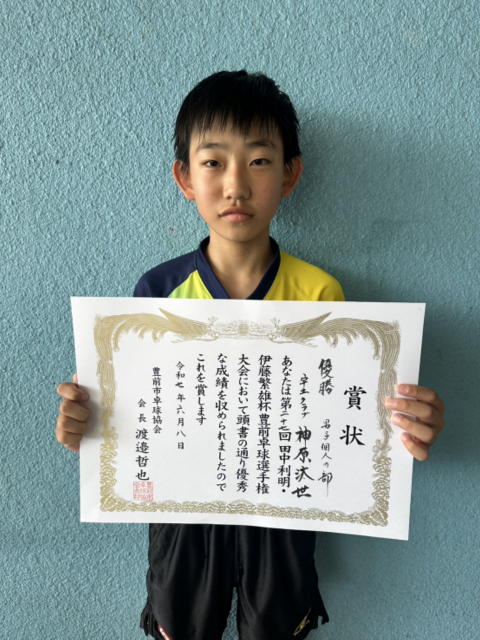 賞状
優勝
男子個人の部
卓土クラブ
神原汰世
あなたは第二十七回田中利明・
伊藤繁雄杯豊前卓球選手権
大会において頭書の通り優秀
な成績を収められましたので
これを賞します
令和七年六月八日
豊前市卓球協会
会長 渡邉哲也